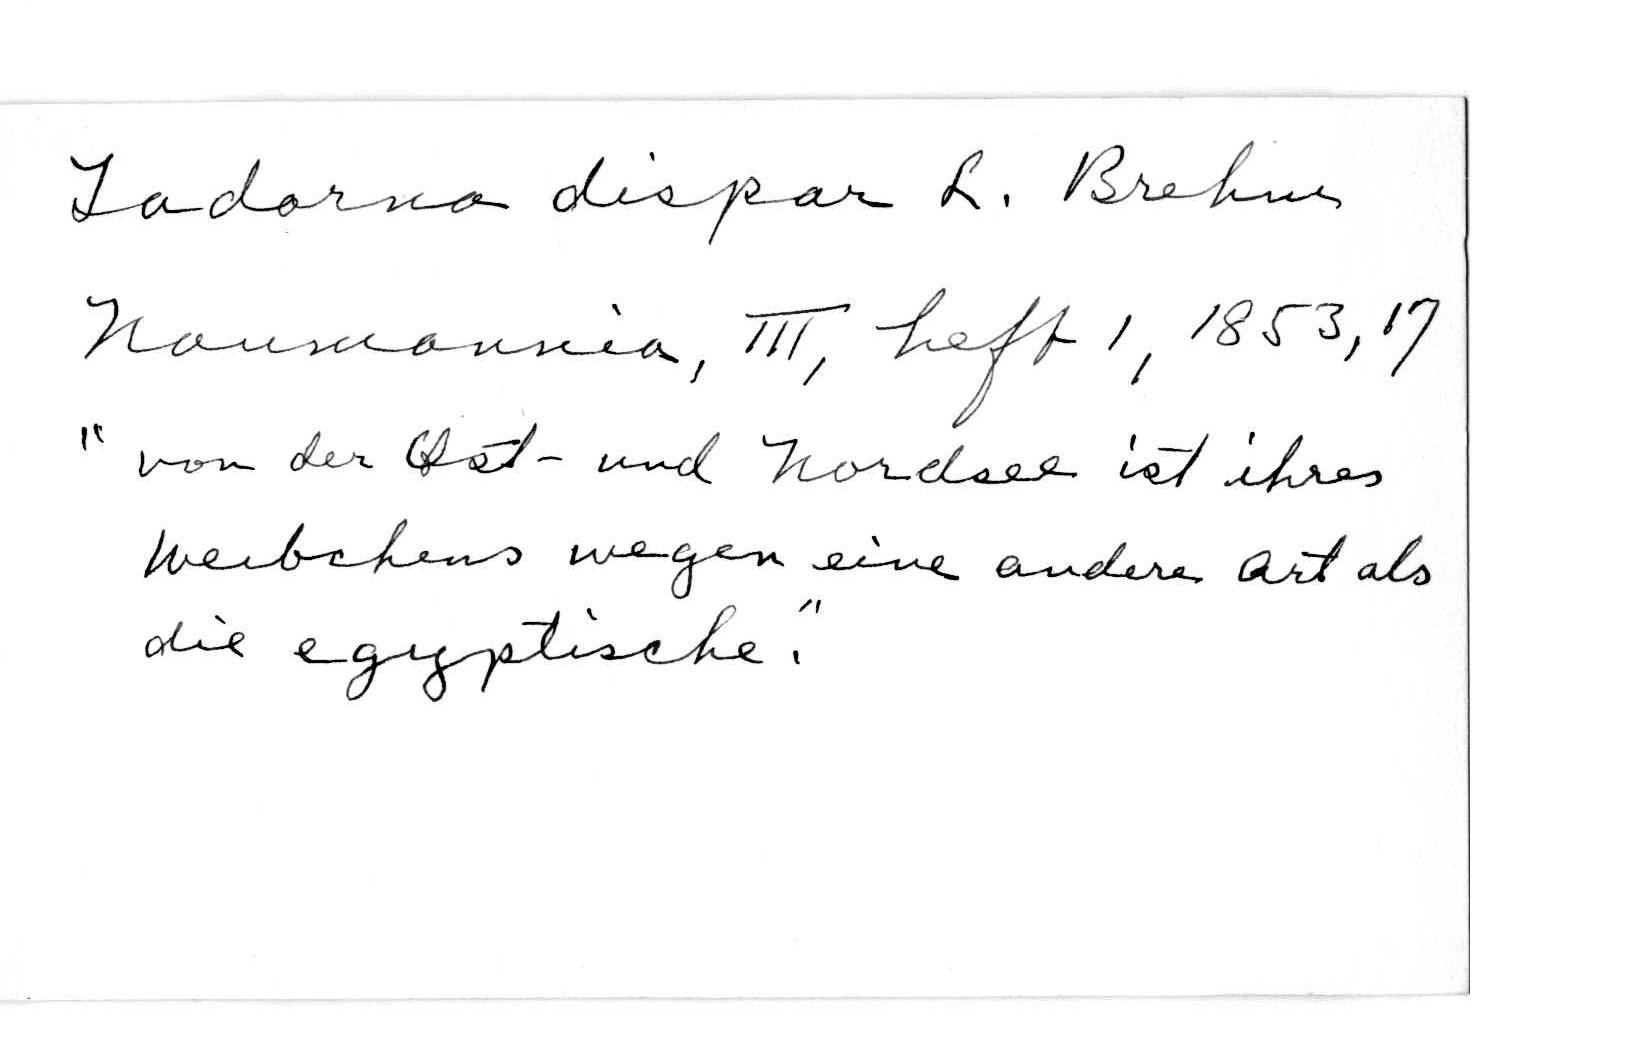 Tadorna dispar L. Brehm
Naumannia, III, heft 1, 1853, 17
"von der Ost- und Nordsee ist ihres
Weibchens wegen eine andere Art als
die egyptische."